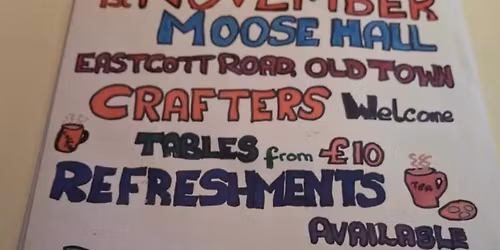 1st NOVEMBER
MOOSE HALL
EASTCOTT ROAD. OLD TOWN
CRAFTERS Welcome
TABLES from £10
REFRESHMENTS
TEA
AVAILABLE